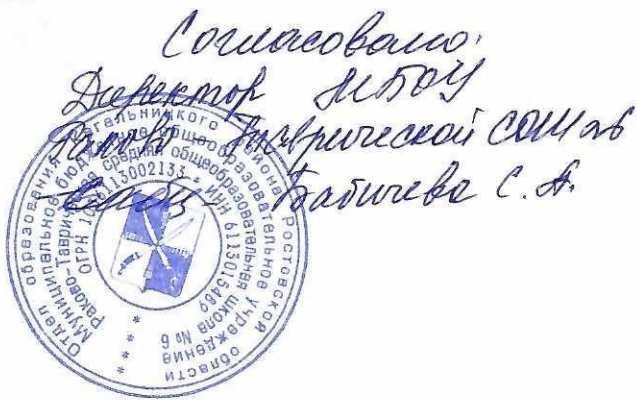 Согласовано:
Директор МБОУ
Раково Таврической СОШ №6
Бабичева С. А.
Отдел образования Кагальницкого района Ростовской области
Муниципальное бюджетное общеобразовательное учреждение
Раково-Таврическая средняя общеобразовательная школа № 6
ИНН 6113015489